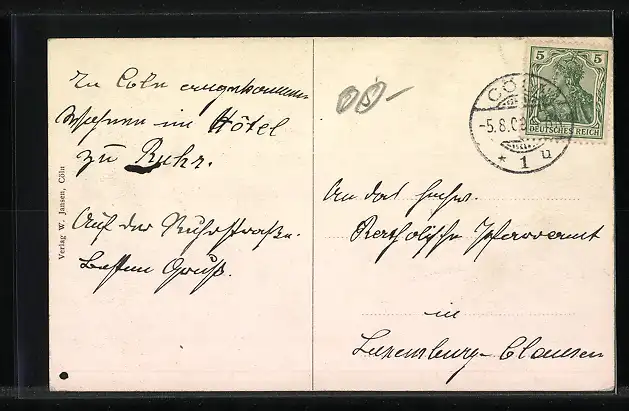 In Cöln angekommen
Wohnen im Hôtel
zu Ruhr.
Auf der Ruhrstraße.
Besten Gruß.
Verlag W. Jansen, Cöln
5 5
DEUTSCHES REICH
CÖLN
-5.8.0
* 1 u
An das hochw.
Katholische Pfarramt
in
Luxemburg-Clausen